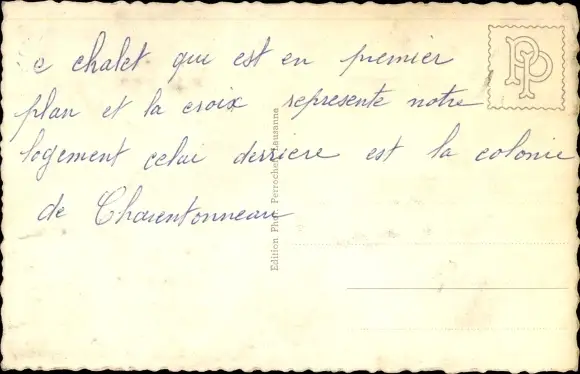 c chalet qui est en premier
plan et la croix represente notre
logement celui derriere est la colonie
de Charentonneau
Edition Phot Perrochet Lausanne
PP